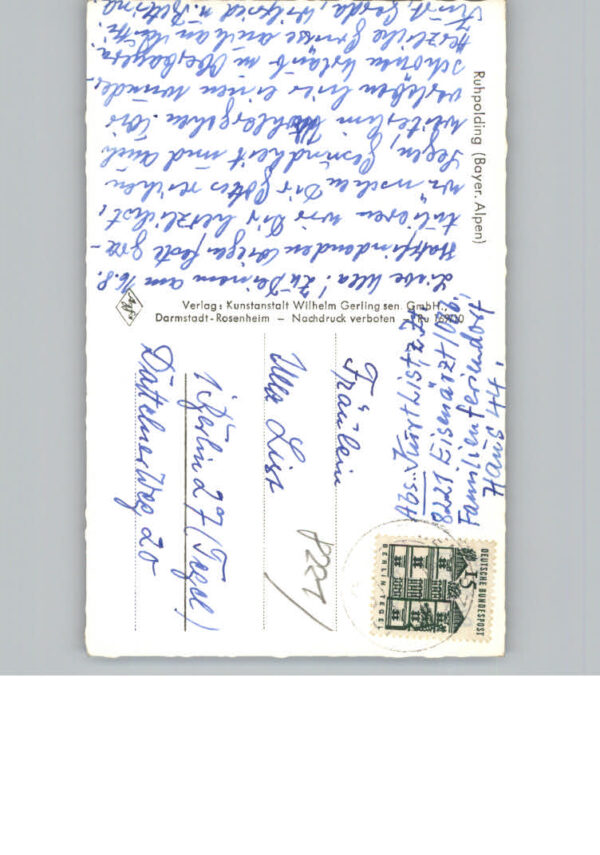 Ruhpolding (Bayer. Alpen)
Liebe Ulla! Zu Deinem am 16.8.
stattfindenden Wiegenfeste gra-
tulieren wir Dir herzlichst,
wünschen Dir Gottes reichen
Segen, Gesundheit und auch
weiterhin Wohlergehen. Wir
verleben hier einen wunder-
schönen Urlaub in Oberbayern.
Herzliche Grüße auch an
Kurt, Gerda, Wilfried u. Bettina
Verlag: Kunstanstalt Wilhelm Gerling sen. GmbH.,
Darmstadt-Rosenheim – Nachdruck verboten – Ru
Abs. Kurt List z. Zt.
8221 Eisenärzt/Obb.
Familienferiendorf
Haus 44.
Fräulein
Ulla List
1 Berlin 27 (Tegel)
Dattelner Weg 20
8221
DEUTSCHE BUNDESPOST
15
BERLIN-TEGEL